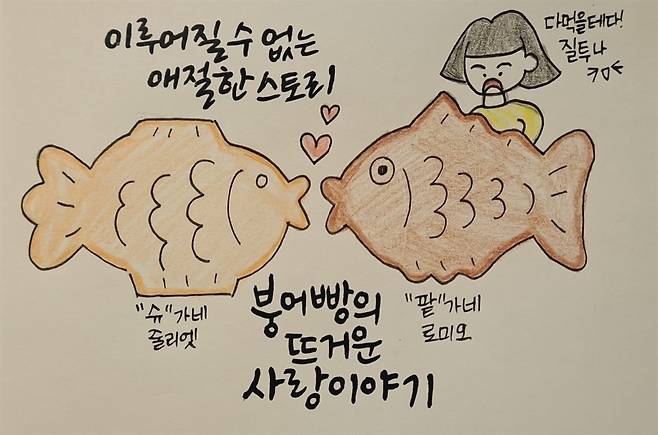 이루어질 수 없는
애절한 스토리
다먹을테다!
질투나
"슈"가네
줄리엣
"팥"가네
로미오
붕어빵의
뜨거운
사랑이야기